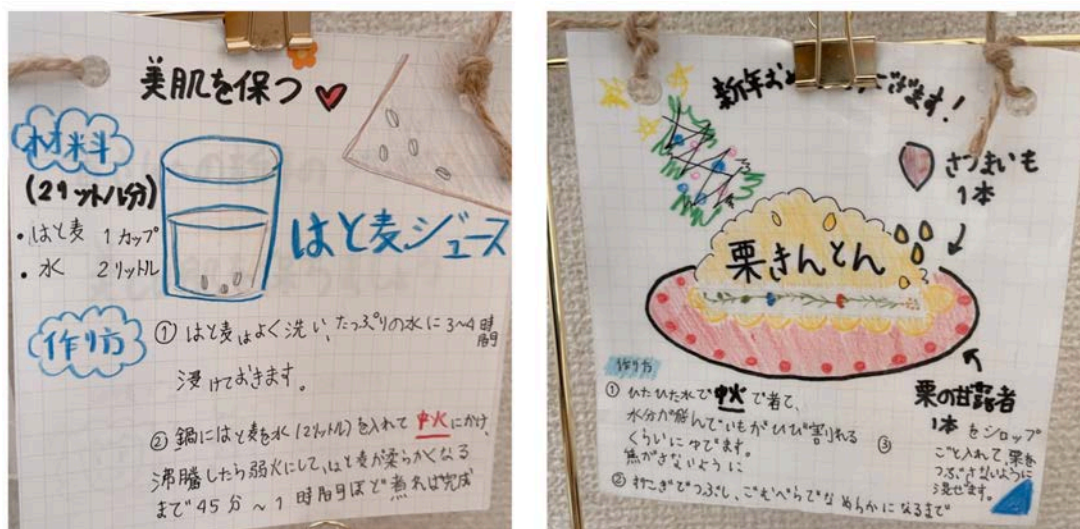 美肌を保つ
材料
(2リットル分)
・はと麦 1カップ
・水 2リットル
はと麦ジュース
作り方
① はと麦はよく洗い、たっぷりの水に3〜4時間
浸けておきます。
② 鍋にはと麦を水(2リットル)を入れて中火にかけ、
沸騰したら弱火にして、はと麦が柔らかくなる
まで45分〜1時間ほど煮れば完成
新年お ざます!
さつまいも
1本
栗きんとん
作り方
① ひたひた水で中火で煮て、
水分が飛んでいもがひび割れる
くらいにゆでます。
焦がさないように
② すりこぎでつぶし、ごむべらでなめらかになるまで
栗の甘露煮
1本をシロップ
③ ごと入れて、栗を
つぶさないように
混ぜます。